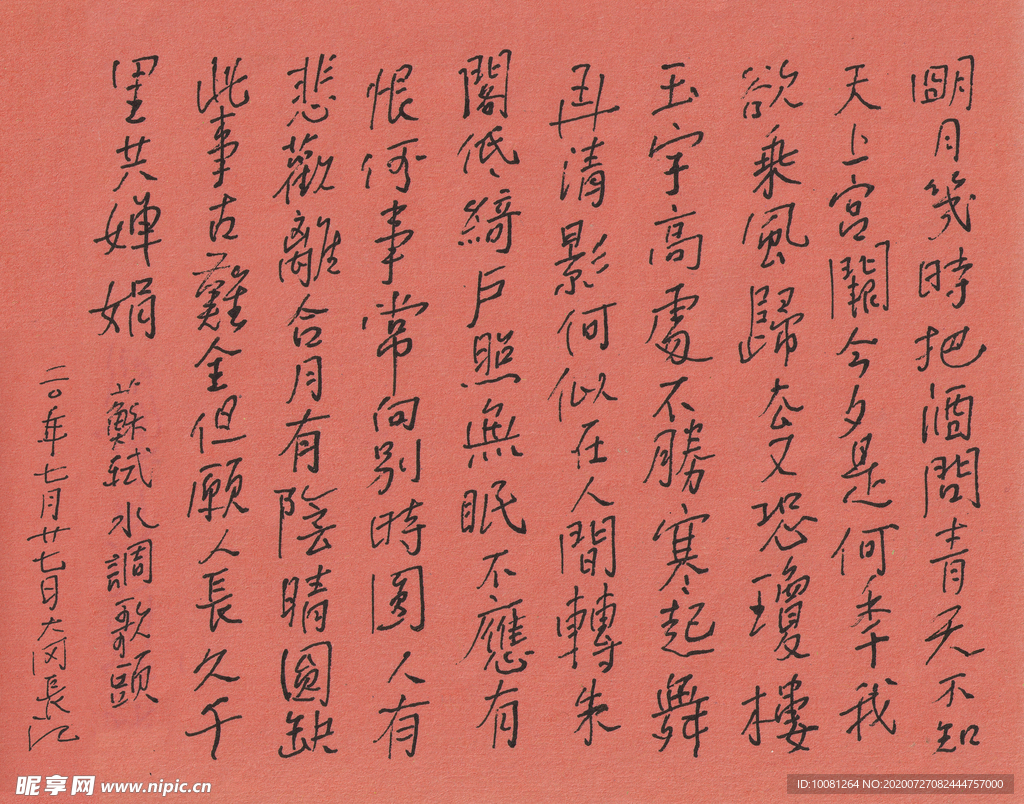 朙月幾時把酒問青天不知
天上宮闕今夕是何年我
欲乘風歸去又恐瓊樓
玉宇高處不勝寒起舞
弄清影何似在人間轉朱
閣低綺戶照無眠不應有
恨何事常向別時圓人有
悲歡離合月有陰晴圓缺
此事古難全但願人長久千
里共嬋娟
蘇軾水調歌頭
二〇年七月廿七日大河長江
昵享网 www.nipic.cn
ID:10081264 NO:20200727082444757000